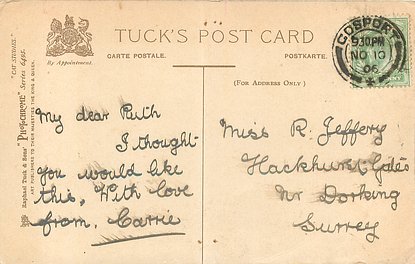 TUCK'S POST CARD
CARTE POSTALE.
POSTKARTE.
By Appointment.
(FOR ADDRESS ONLY)
"CAT STUDIES."
Raphael Tuck & Sons' "PHOTOCHROME" Series 6495.
ART PUBLISHERS TO THEIR MAJESTIES THE KING & QUEEN.
GOSPORT
930PM
NO 10
06
My dear Ruth
I thought
you would like
this, With love
from. Carrie
Miss R. Jeffery
Hackhurst
Nr Dorking
Surrey